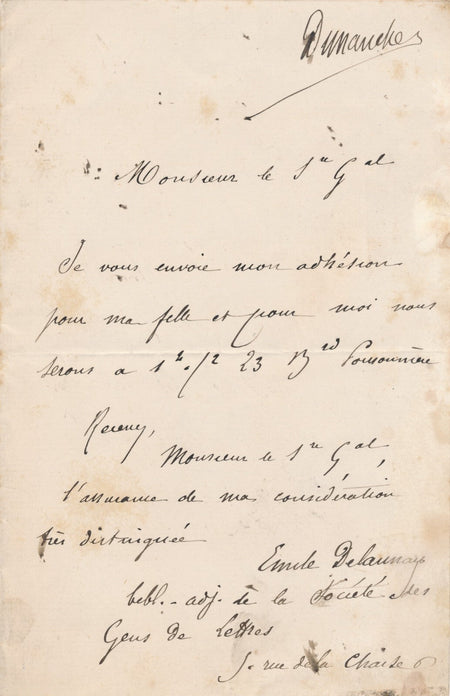 Dimanche
Monsieur le Sre Gal
Je vous envoie mon adhésion
pour ma fille et pour moi nous
serons a 1h 1/2 23 Bd Poissonnière
Recevez,
Monsieur le Sre Gal,
l'assurance de ma considération
très distinguée
Emile Delaunay
bibl.-adj. de la Société des
Gens de Lettres
5. rue de la Chaise